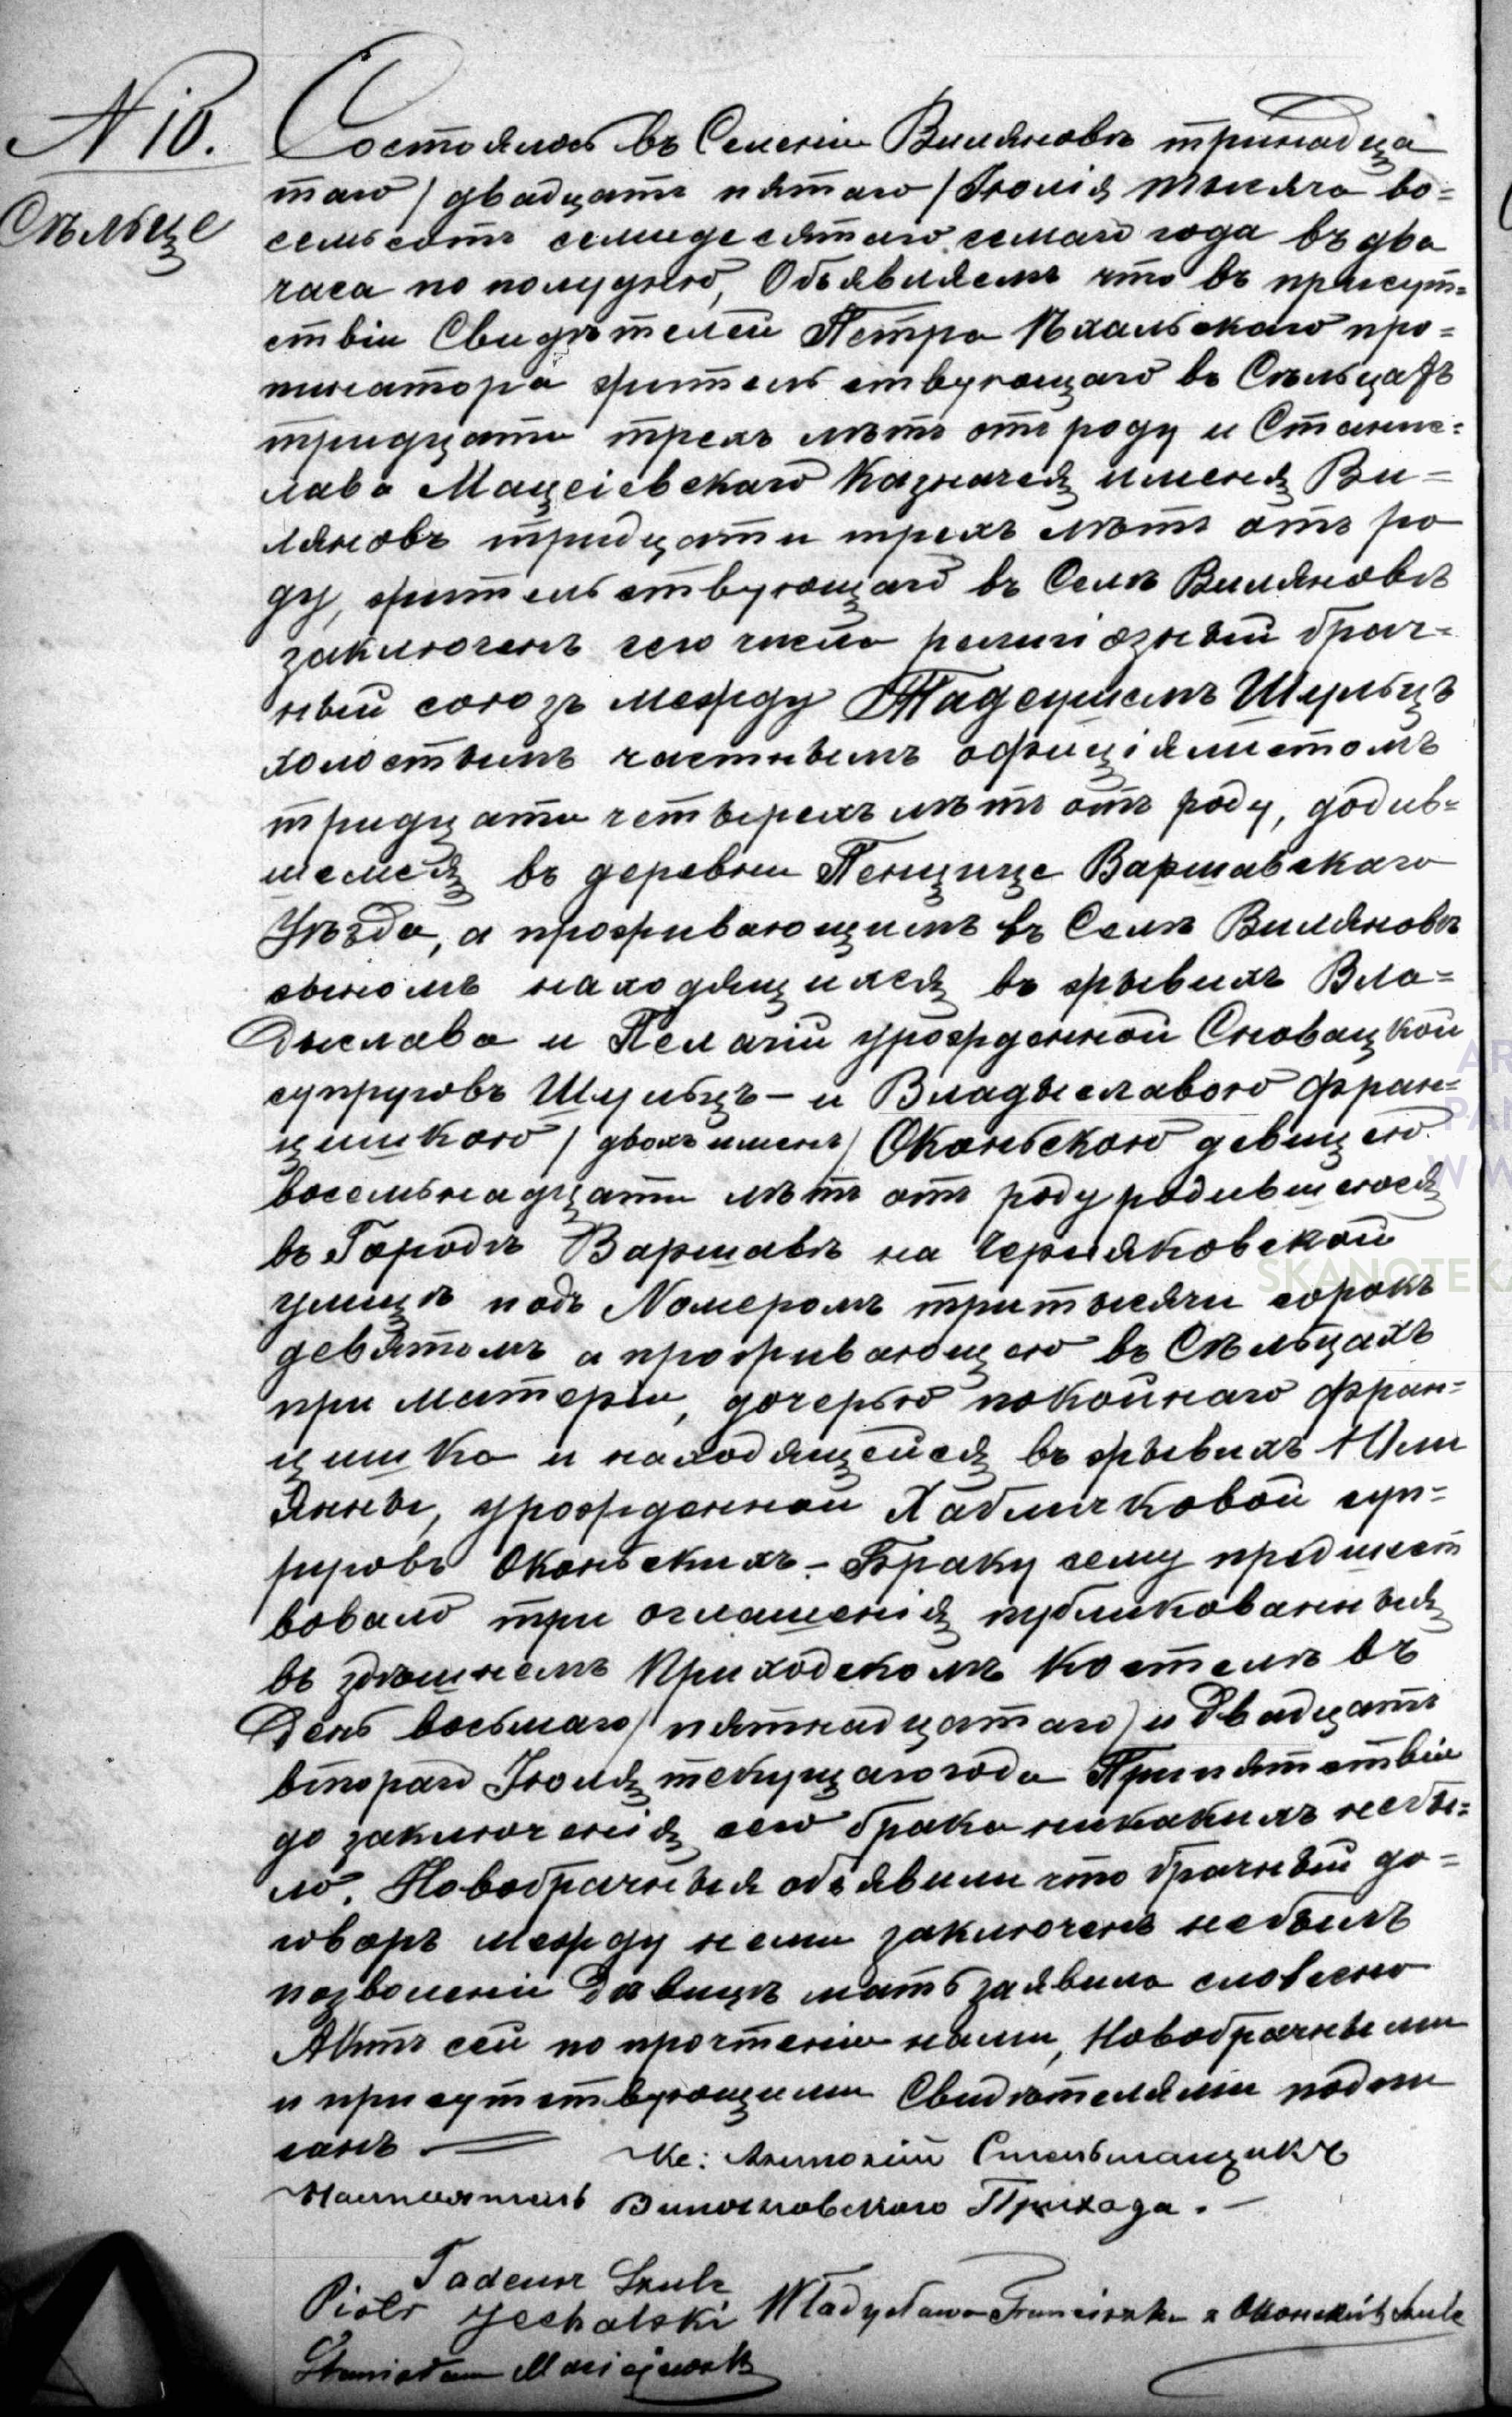 N 10.
Сѣльце
Состоялось въ Селеніи Виляновѣ тринадца
таго / двадцать пятаго / Іюлія тысяча во=
семьсотъ семидесятаго седмаго года въ два
часа по полудню, Объявляемъ что въ присут=
ствіи Свидѣтелей Петра Ѣхальскаго про=
пинатора жительствующаго въ Сѣльцахъ
тридцати трехъ лѣтъ отъ роду и Станис=
лава Мацеіевскаго Казначея именія Ви=
ляновъ тридцати трехъ лѣтъ отъ ро
ду, жительствующаго въ Селѣ Виляновѣ
заключенъ сего числа религіозный брач=
ный союзъ между Тадеушемъ Шульцъ
холостымъ частнымъ офиціялистомъ
тридцати четырехъ лѣтъ отъ роду, родив=
шемся въ деревни Пенцице Варшавскаго
Уѣзда, а проживающимъ въ Селѣ Виляновѣ
сыномъ находящихся въ живыхъ Вла=
дыслава и Пелагіи урожденной Сновацкой
супруговъ Шульцъ – и Владыславою Фран=
цишкою / двохъ именъ / Оконьскою девицею
восемьнадцати лѣтъ отъ роду родившеюся
въ Городѣ Варшавѣ на Черняковской
улицѣ подъ Номеромъ тритысячи сорокъ
девятомъ а проживающею въ Сѣльцахъ
при матери, дочерью покойнаго Фран=
цишка и находящейся въ живыхъ Юли
Янны, урожденной Хабличковой суп=
руговъ Оконьскихъ. – Браку сему предшест
вовало три оглашенія публикованныя
въ здѣшнемъ Приходскомъ Костелѣ въ
День восьмаго / пятнадцатаго / и Двадцать
втораго Іюля текущаго года Припятствіи
до заключенія сего брака никакихъ небы=
ло. Новобрачныя объявили что брачный до=
говоръ между неми заключенъ небылъ
позволеніи Дѣвицѣ мать заявила словесно
Актъ сей по прочтенію нами, Новобрачными
и присутствующими Свидѣтелями подпи
санъ. =
Кс: Антоній Стельмащикъ
Настоятель Виляновского Прихода. –
Tadeusz Szulc
Piotr Jechalski Władysława Franciszka z Okońskich Szulc
Stanisław Maciejewski